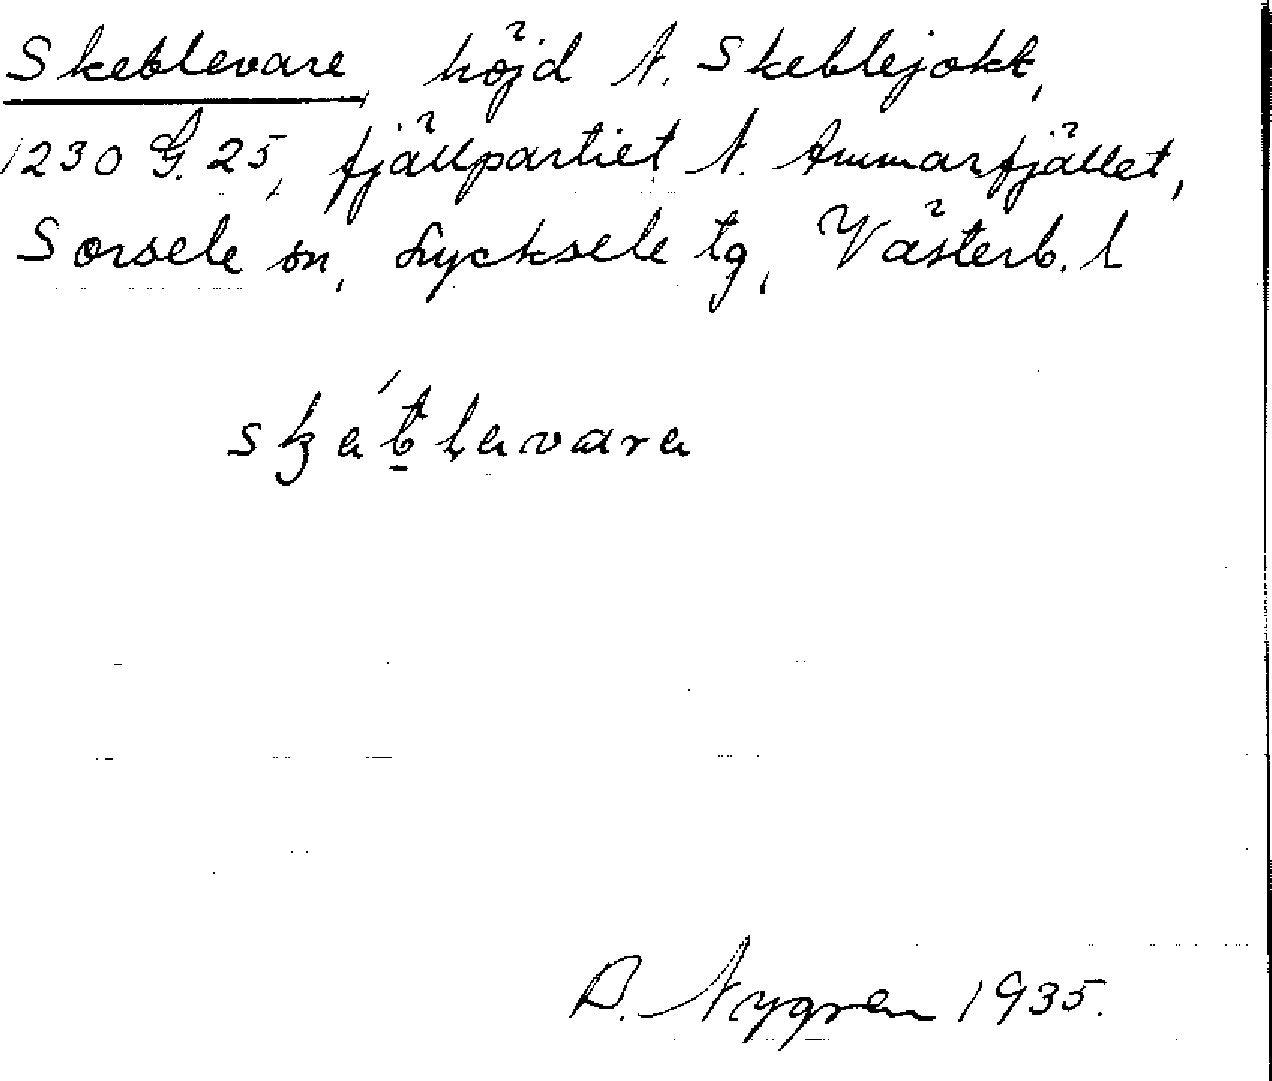 Skeblevare, höjd N. Skeblejokk,
1230 G. 25, fjällpartiet N. Ammarfjället,
Sorsele sn, Lycksele tg, Västerb. l
Nygren 1935.